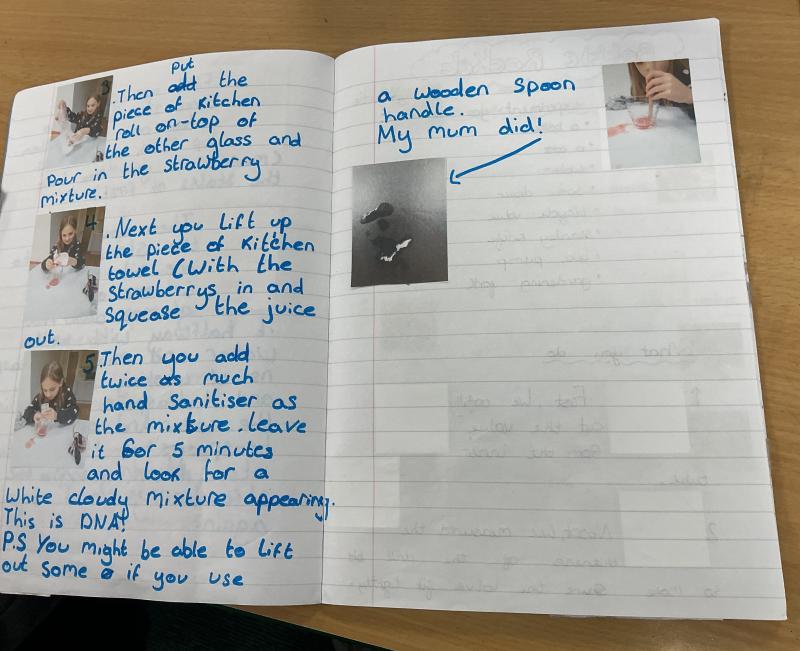 Put
3. Then add the
piece of Kitchen
roll on-top of
the other glass and
Pour in the Strawberry
mixture.
4. Next you Lift up
the piece of Kitchen
towel (With the
Strawberrys in and
Squease the juice
out.
5. Then you add
twice as much
hand Sanitiser as
the mixture. leave
it for 5 minutes
and look for a
White cloudy mixture appearing.
This is DNA!
P.S You might be able to lift
out some if you use
a wooden Spoon
handle.
My mum did!
What you do